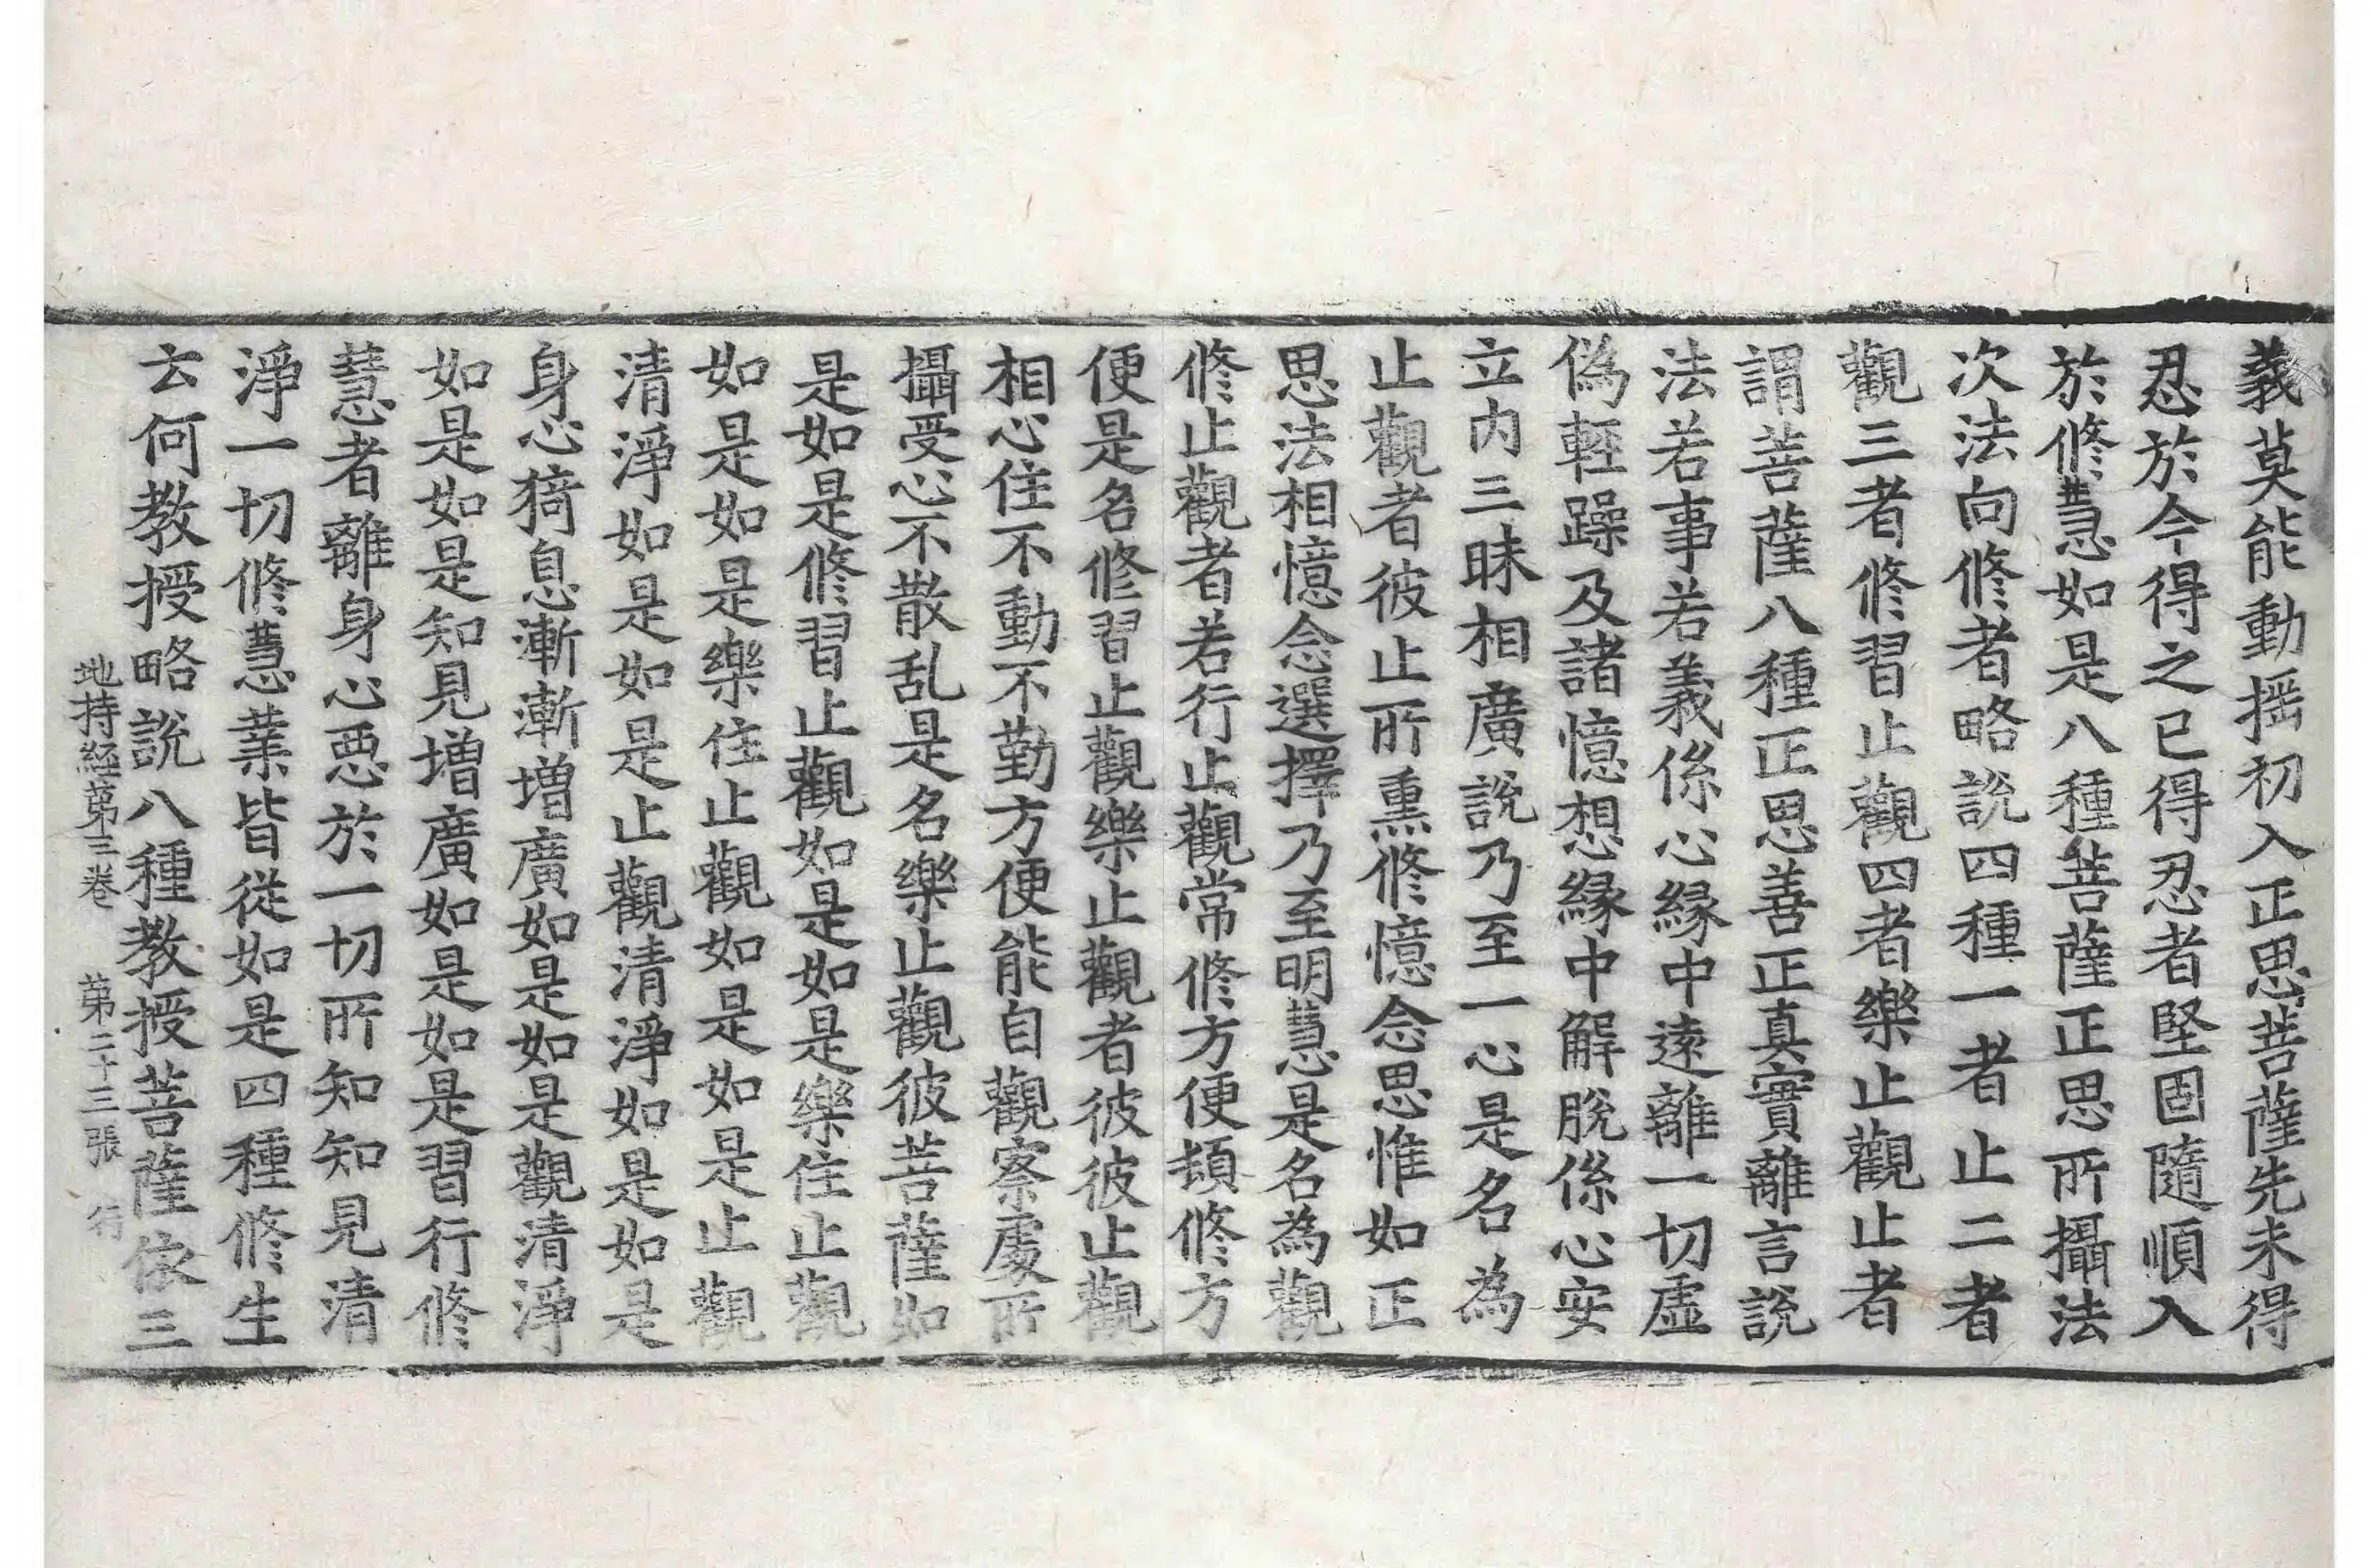 義莫能動揺初入正思菩薩先未得
忍於今得之已得忍者堅固隨順入
於修慧如是八種菩薩正思所攝法
次法向修者略說四種一者止二者
觀三者修習止觀四者樂止觀止者
謂菩薩八種正思善正真實離言說
法若事若義係心縁中遠離一切虛
偽輕躁及諸憶想縁中解脫係心安
立内三昧相廣說乃至一心是名為
止觀者彼止所熏修憶念思惟如正
思法相憶念選擇乃至明慧是名為觀
修止觀者若行止觀常修方便頓修方
便是名修習止觀樂止觀者彼彼止觀
相心住不動不勤方便能自觀察處所
攝受心不散乱是名樂止觀彼菩薩如
是如是修習止觀如是如是樂住止觀
如是如是樂住止觀如是如是止觀
清淨如是如是止觀清淨如是如是
身心猗息漸漸增廣如是如是觀清淨
如是如是知見増廣如是如是習行修
慧者離身心惡於一切所知知見清
淨一切修慧業皆從如是四種修生
云何教授略說八種教授菩薩依三
地持經第三卷 第二十三張 行